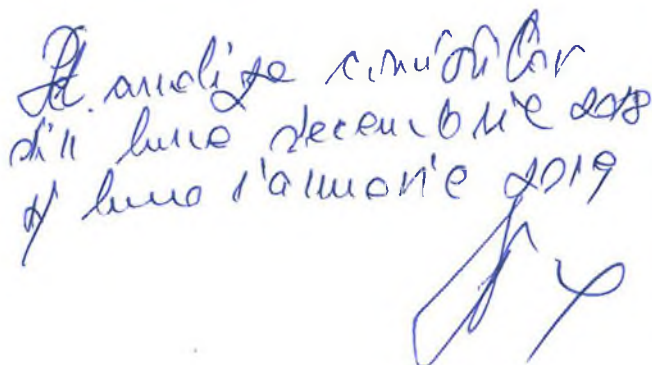 Pt. analiza cimitirilor
din luna decembrie 2018
și luna ianuarie 2019